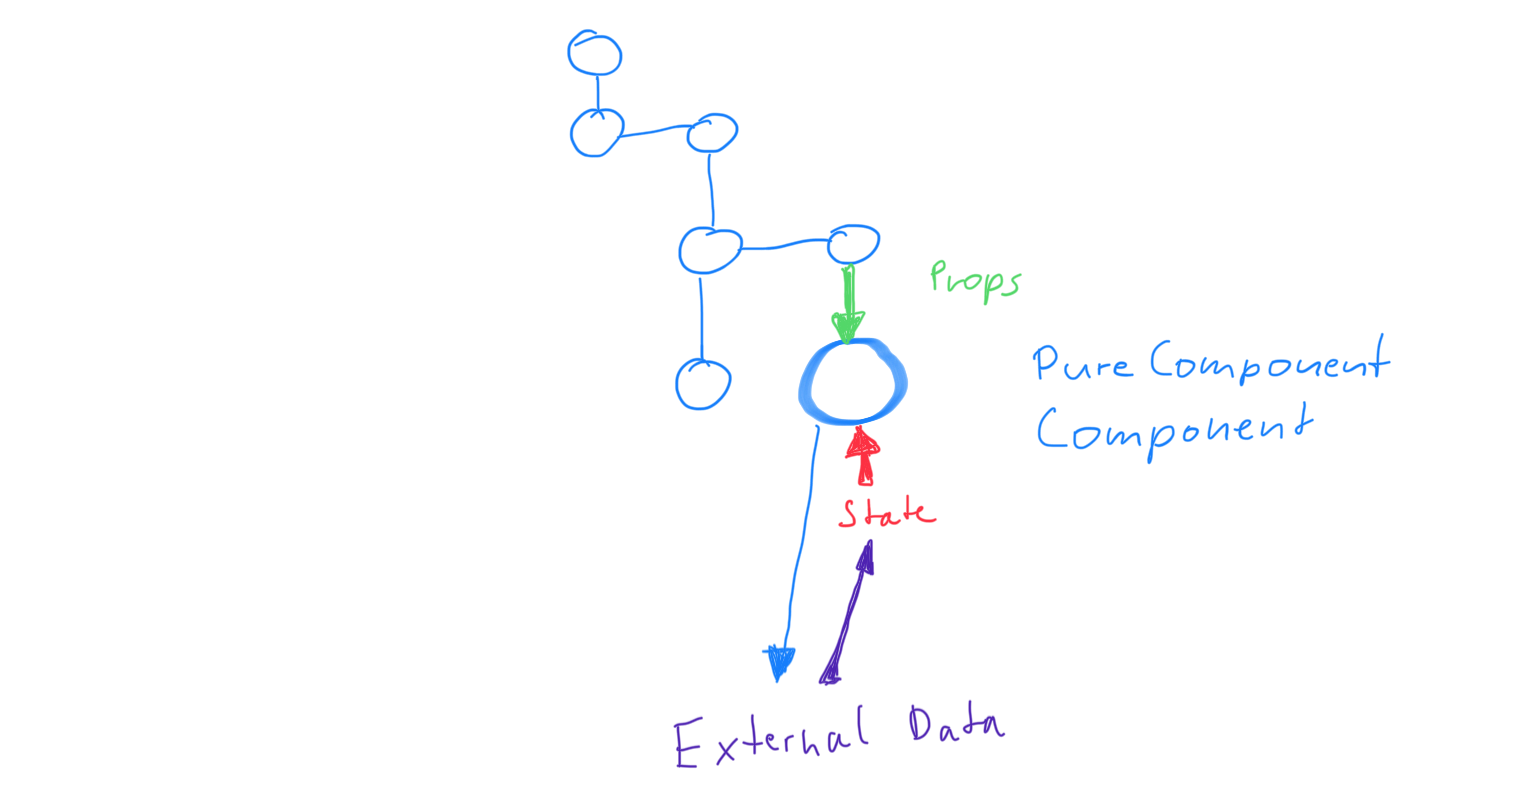 Props
Pure Component
Component
State
External Data